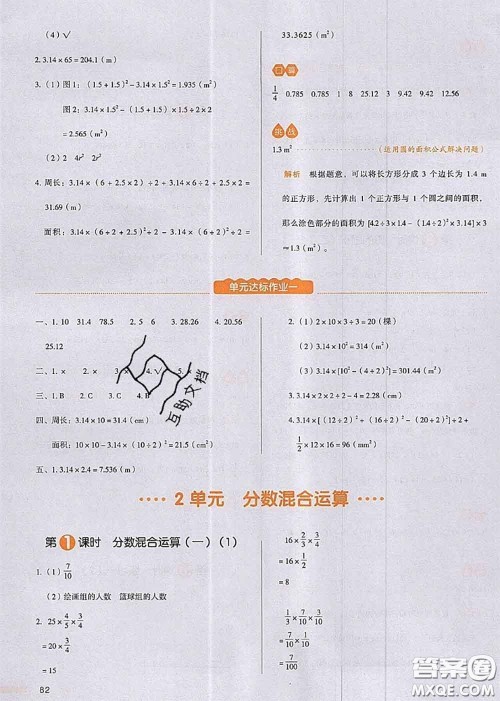 (4) √
2. 3.14×65=204.1(m)
3.(1) 图1:(1.5+1.5)²-3.14×1.5²=1.935(m²)
图2:3.14×1.5²-(1.5+1.5)×1.5÷2×2
=2.565(m²)
(2) 2 4r² 2r²
4. 周长:3.14×(6+2.5×2)×2÷2-3.14×2÷2=
31.69(m)
面积:3.14×(6÷2+2.5)²÷2-3.14×(6÷2)²÷2=
33.3625(m²)
口算
1/4 0.785 0.785 1 8 25.12 3 9.42 9.42 12.56
挑战
1.3 m² (运用圆的面积公式解决问题)
解析 根据题意,可以将长方形分成 3 个边长为 1.4 m
的正方形,先计算出 1 个正方形与 1 个圆之间的面积,
那么涂色部分的面积[4.2÷3×1.4-(1.4÷2)²×3.14]×3
≈1.3(m²)。
单元达标作业一
一、1. 10 31.4 78.5 2. 5 6 3. 28.26 4. 20.56
25.12
二、1. × 2. × 3. × 4. √ 5. ×
三、1. B 2. C 3. B 4. B
四、周长:3.14×10=31.4(cm)
面积:10×10-3.14×(10÷2)²=21.5(cm²)
五、1. 3.14×2.4=7.536(m)
2.(1) 2×10×3÷3=20(棵)
(2) 3.14×10²=314(m²)
(3) 3.14×[(10+4)²-10²]=301.44(m²)
3. 3.14×2×2÷2-4=2.28(cm²)
4. 3.14×[(12÷2)²+(16÷2)²-(20÷2)²]÷2+
1/2×12×16=96(mm²)
2 单元 分数混合运算
第1课时 分数混合运算(一)(1)
1.(1) 7/10
(2) 绘画组的人数 篮球组的人数
2. 25×4/5×3/4
=20×3/4
=15
16×2/3×3/4
=16×1/2
=8
1/3×7/10×3/10
=7/10×1/10
=7/100
82
互助文档
答案圈
MXQE.COM